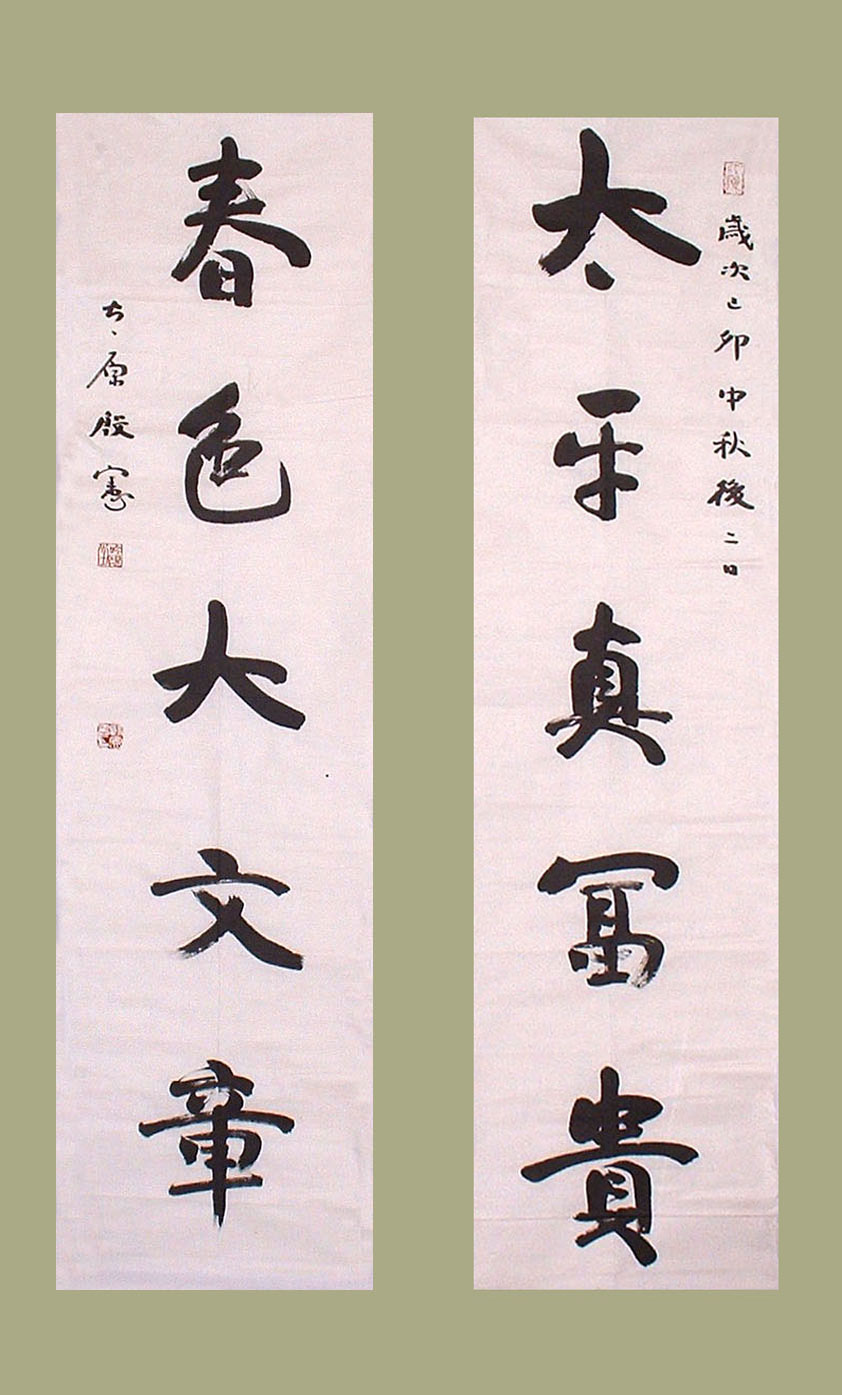 歲次己卯中秋後二日
太平真冨貴
春色大文章
太原殷憲